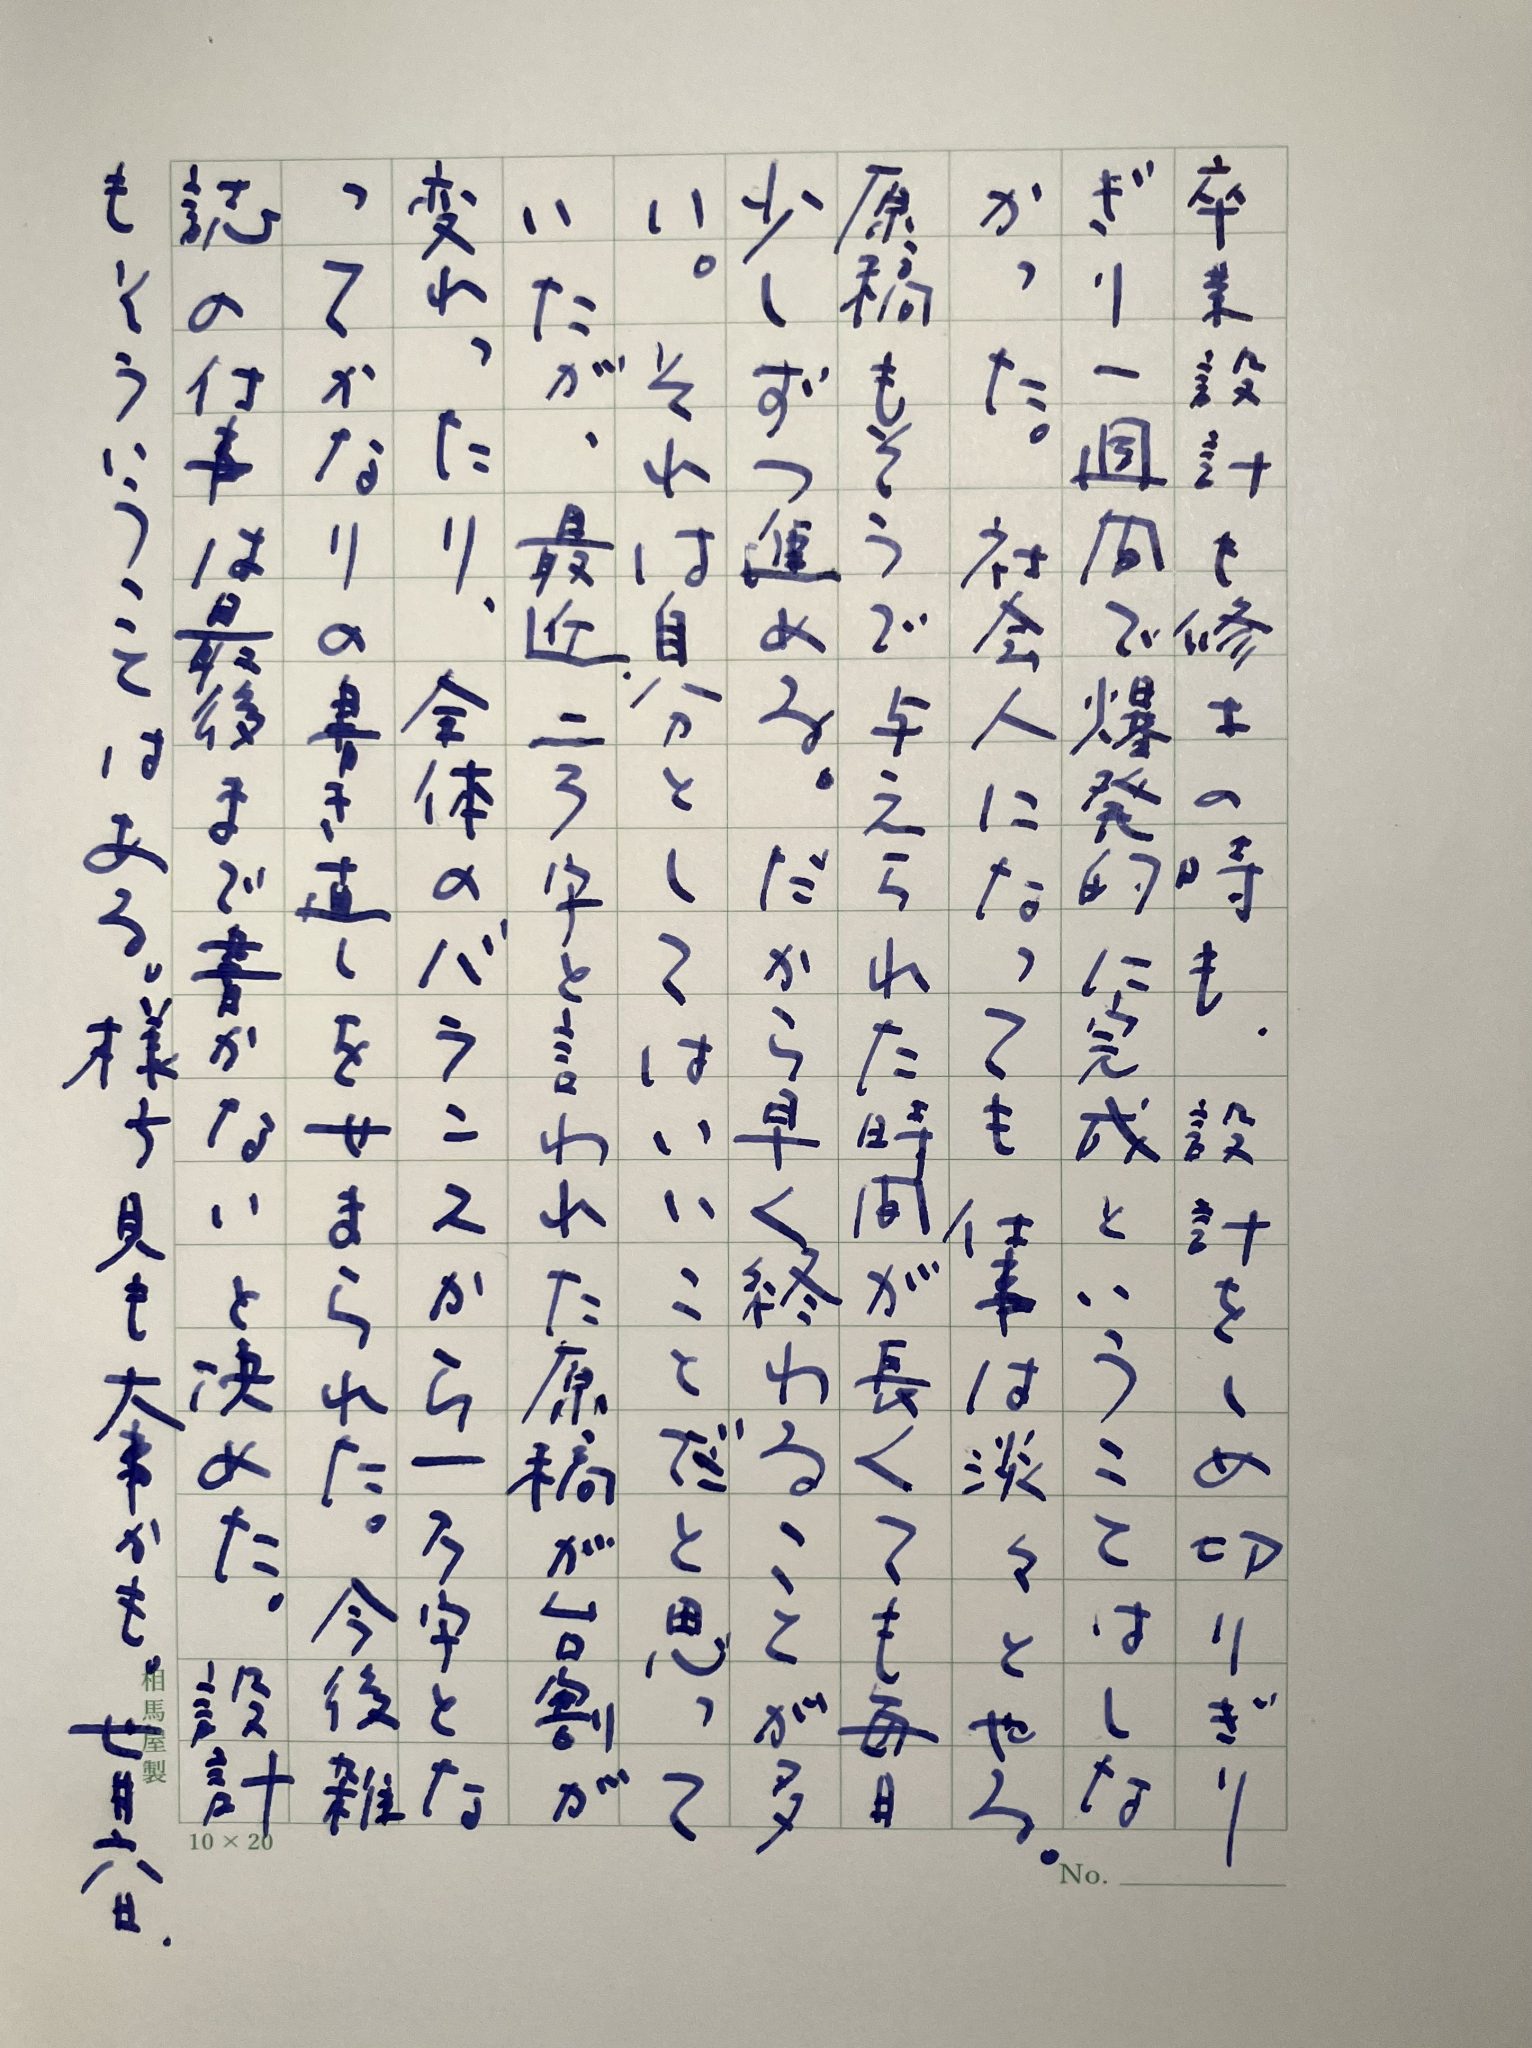 卒業設計も修士の時も、設計をしめ切りぎり
ぎり一週間で爆発的に完成ということはしな
かった。社会人になっても仕事は淡々とやる。
原稿もそうで与えられた時間が長くても毎日
少しずつ進める。だから早く終わることが多
い。それは自分としてはいいことだと思って
いたが、最近二万字と言われた原稿が台割が
変わったり、全体のバランスから一万字とな
ってかなりの書き直しをせまられた。今後雑
誌の仕事は最後まで書かないと決めた。設計
もそういうことはある。様子見も大事かも。七月六八日.
相馬屋製
10×20
No.